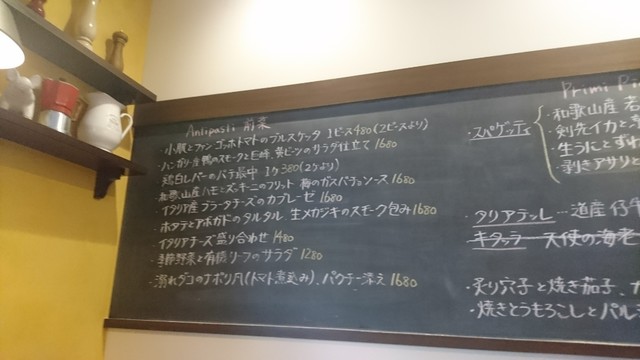 Antipasti 前菜
・小腹とファンゴッホトマトのブルスケッタ 1ピース480(2ピースより)
・ハンガリー産鴨のスモークと巨峰、黄ビーツのサラダ仕立て 1680
・鶏白レバーのパテ最中 1ケ380(2ケより)
・和歌山産ハモとズッキーニのフリット 梅のガスパチョソース 1680
・イタリア産ブラータチーズのカプレーゼ 1680
・ホタテとアボカドのタルタル 生メカジキのスモーク包み 1680
・イタリアチーズ盛り合わせ 1480
・季節野菜と有機リーフのサラダ 1280
・溺れダコのナポリ風(トマト煮込み)、パクチー添え 1680
Primi Pi
・スパゲッティ
・和歌山産
・剣先イカと
・生うにとずわ
・剥きアサリと
・タリアテッレ…道産仔牛
・キタッラ 天使の海老
・炙り穴子と焼き茄子、
・焼きとうもろこしとパルミ